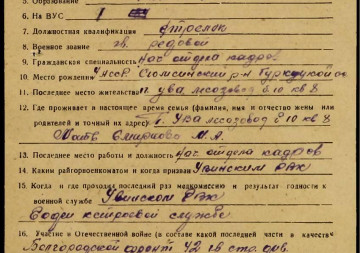 5. Образование
6. На ВУС I
7. Должностная квалификация стрелок
8. Военное звание гв. рядовой
9. Гражданская специальность Нач отдела кадров
10. Место рождения УАССР Сюмсинский р-н
11. Последнее место жительства п. Ува лесозавод д 10 кв 8
12. Где проживает в настоящее время семья (фамилия, имя и отчество жены или
родителей и точный их адрес) П. Ува лесозавод д 10 кв 8
Мать Смирнова М. А.
13. Последнее место работы и должность Нач отдела кадров
14. Каким райгорвоенкоматом и когда призван Увинским РВК
15. Когда и где проходил последний раз медкомиссию и результат годности к
военной службе Увинском РВК
Годен к строевой службе
16. Участие в Отечественной войне (в составе какой последней части и в качестве
фронт 42 гв. стр. див.